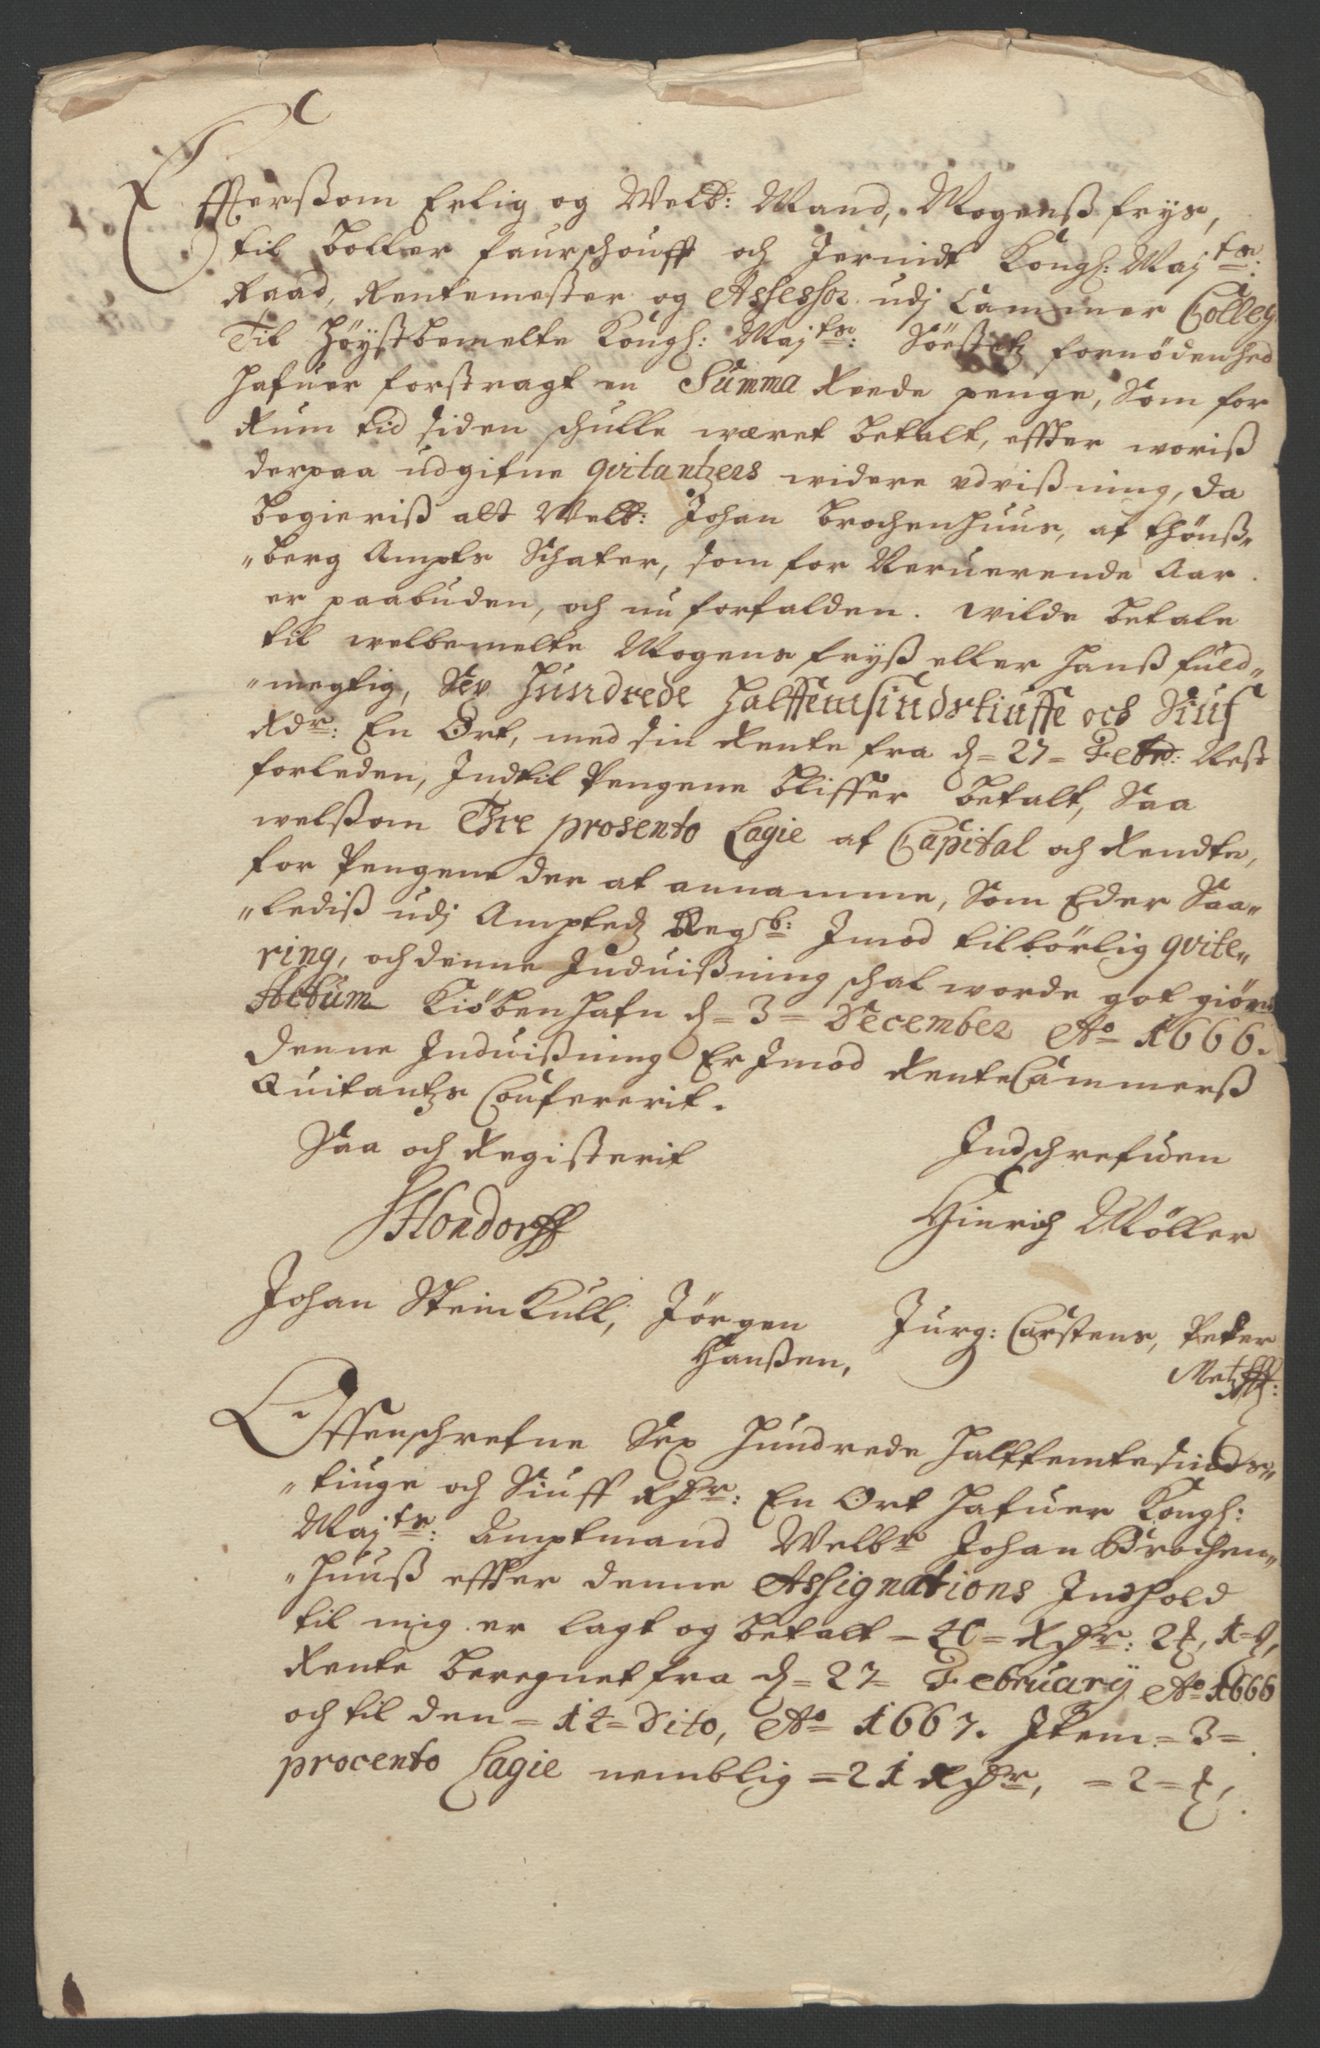 Effterßom Erlig og Welb: Mand, Mogenß frys,
til boller faurschouff och Jernidt Kongl: Maj ts:
Raad, Rentemester og Assessor udj Cammer Colleg
Til Höystbemelte Kongl: Maj ts: Söestetz fornödenhed
hafuer forstragt en Summa Reede penge, Som for
Rum tid siden schulle wæret betalt, effter woriß
derpaa udgifne qvitantzers widere vdvißning, da
begieriß alt Welb: Johan Brochenhuus, af thönß„
„berg Ampts Schater, som for Neruerende Aar
er paabuden, och nu forfalden. wilde betale
til welbemelte Mogens fryß eller hanß fuld„
„megtig, Sex Hundrede Halffemsindstiuffe och Siuf
Rdr: En Ort, med sin Rente fra d= 27= Febr: Nest
forleden, Indtil Pengene bliffer betalt, Saa
welßom Thre prosento Lagie af Capital och Rendte,
for Pengene der at annamme, Som Eder Saa„
„lediß udj Amptedz Regsb: Imod tilbörlig qvite„
ring, och denne Induißning schal worde got giört
Actum Kiöbenhafn d= 3= December Ao 1666.
Denne Induißning Er Imod RenteCammerß
Quitantzs Confererit.
Saa och Registerit Indschrefuen
Hondorff Hinrich Möller
Johan SteinKull, Jörgen Jurg: Carstens, Peter
Hanßen, Metzff:
Offenschrefne Sex Hundrede Halffemtesinds„
„tiuge och Siuff Rdr: En Ort hafuer Kongl:
Maj ts: Amptmand Welbr Johan Brochen„
„huuß effter denne Assignations Indhold
til mig er lagt og betalt = 40= Rdr: 2 ,
Rente beregnet fra d= 27= February Ao 1666
och til den = 14= Dito, Ao 1667. Item = 3=
procento Lagie nemblig = 21 Rdr, = 2=